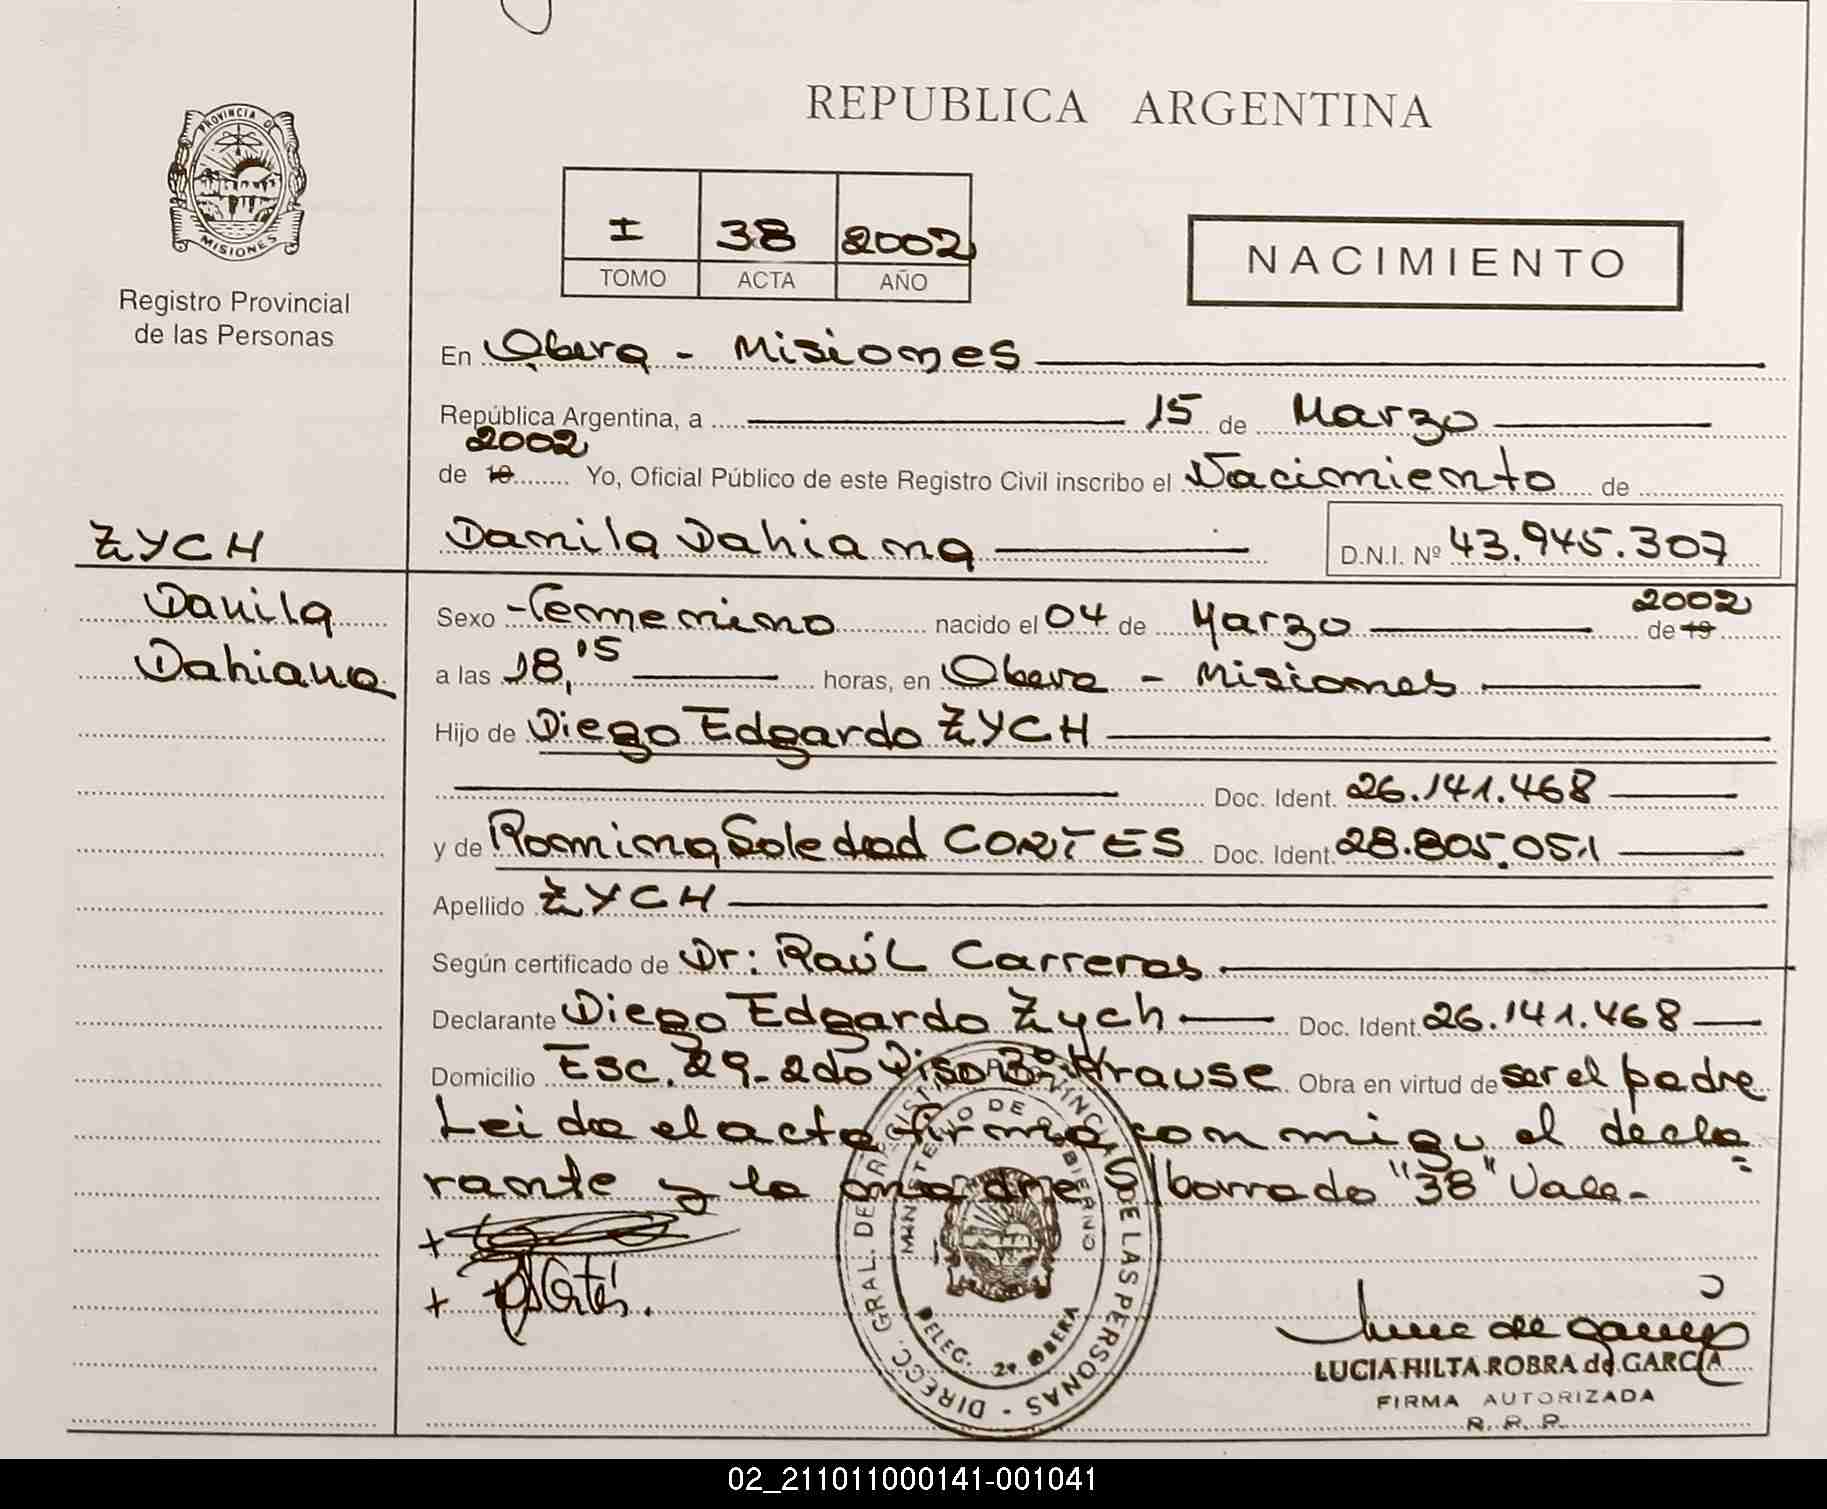 REPUBLICA ARGENTINA
PROVINCIA DE
MISIONES
Registro Provincial
de las Personas
I 38 2002
TOMO ACTA AÑO
NACIMIENTO
En Obera - Misiones
República Argentina, a 15 de Marzo
2002
de 19 Yo, Oficial Público de este Registro Civil inscribo el Nacimiento de
ZYCH
Danila Dahiana D.N.I. Nº 43.945.307
Danila
Dahiana
2002
Sexo Femenino nacido el 04 de Marzo de 19
a las 18,15 horas, en Obera - Misiones
Hijo de Diego Edgardo ZYCH
Doc. Ident. 26.141.468
y de Romina Soledad CORTES Doc. Ident. 28.805.051
Apellido ZYCH
Según certificado de Dr: Raúl Carreras
Declarante Diego Edgardo Zych Doc. Ident. 26.141.468
Domicilio Esc. 29- 2do Piso Bº Krause Obra en virtud de ser el padre
Leida el acta firma con migu el decla
rante y la madre S/borrado "38" Vale-
+
+ Cortés.
DIRECC. GRAL. DE REGISTRO PROVINCIAL DE LAS PERSONAS -
MINISTERIO DE GOBIERNO
DELEG. 2ª OBERA
LUCIA HILTA ROBRA de GARCIA
FIRMA AUTORIZADA
R. R. P.
02_211011000141-001041